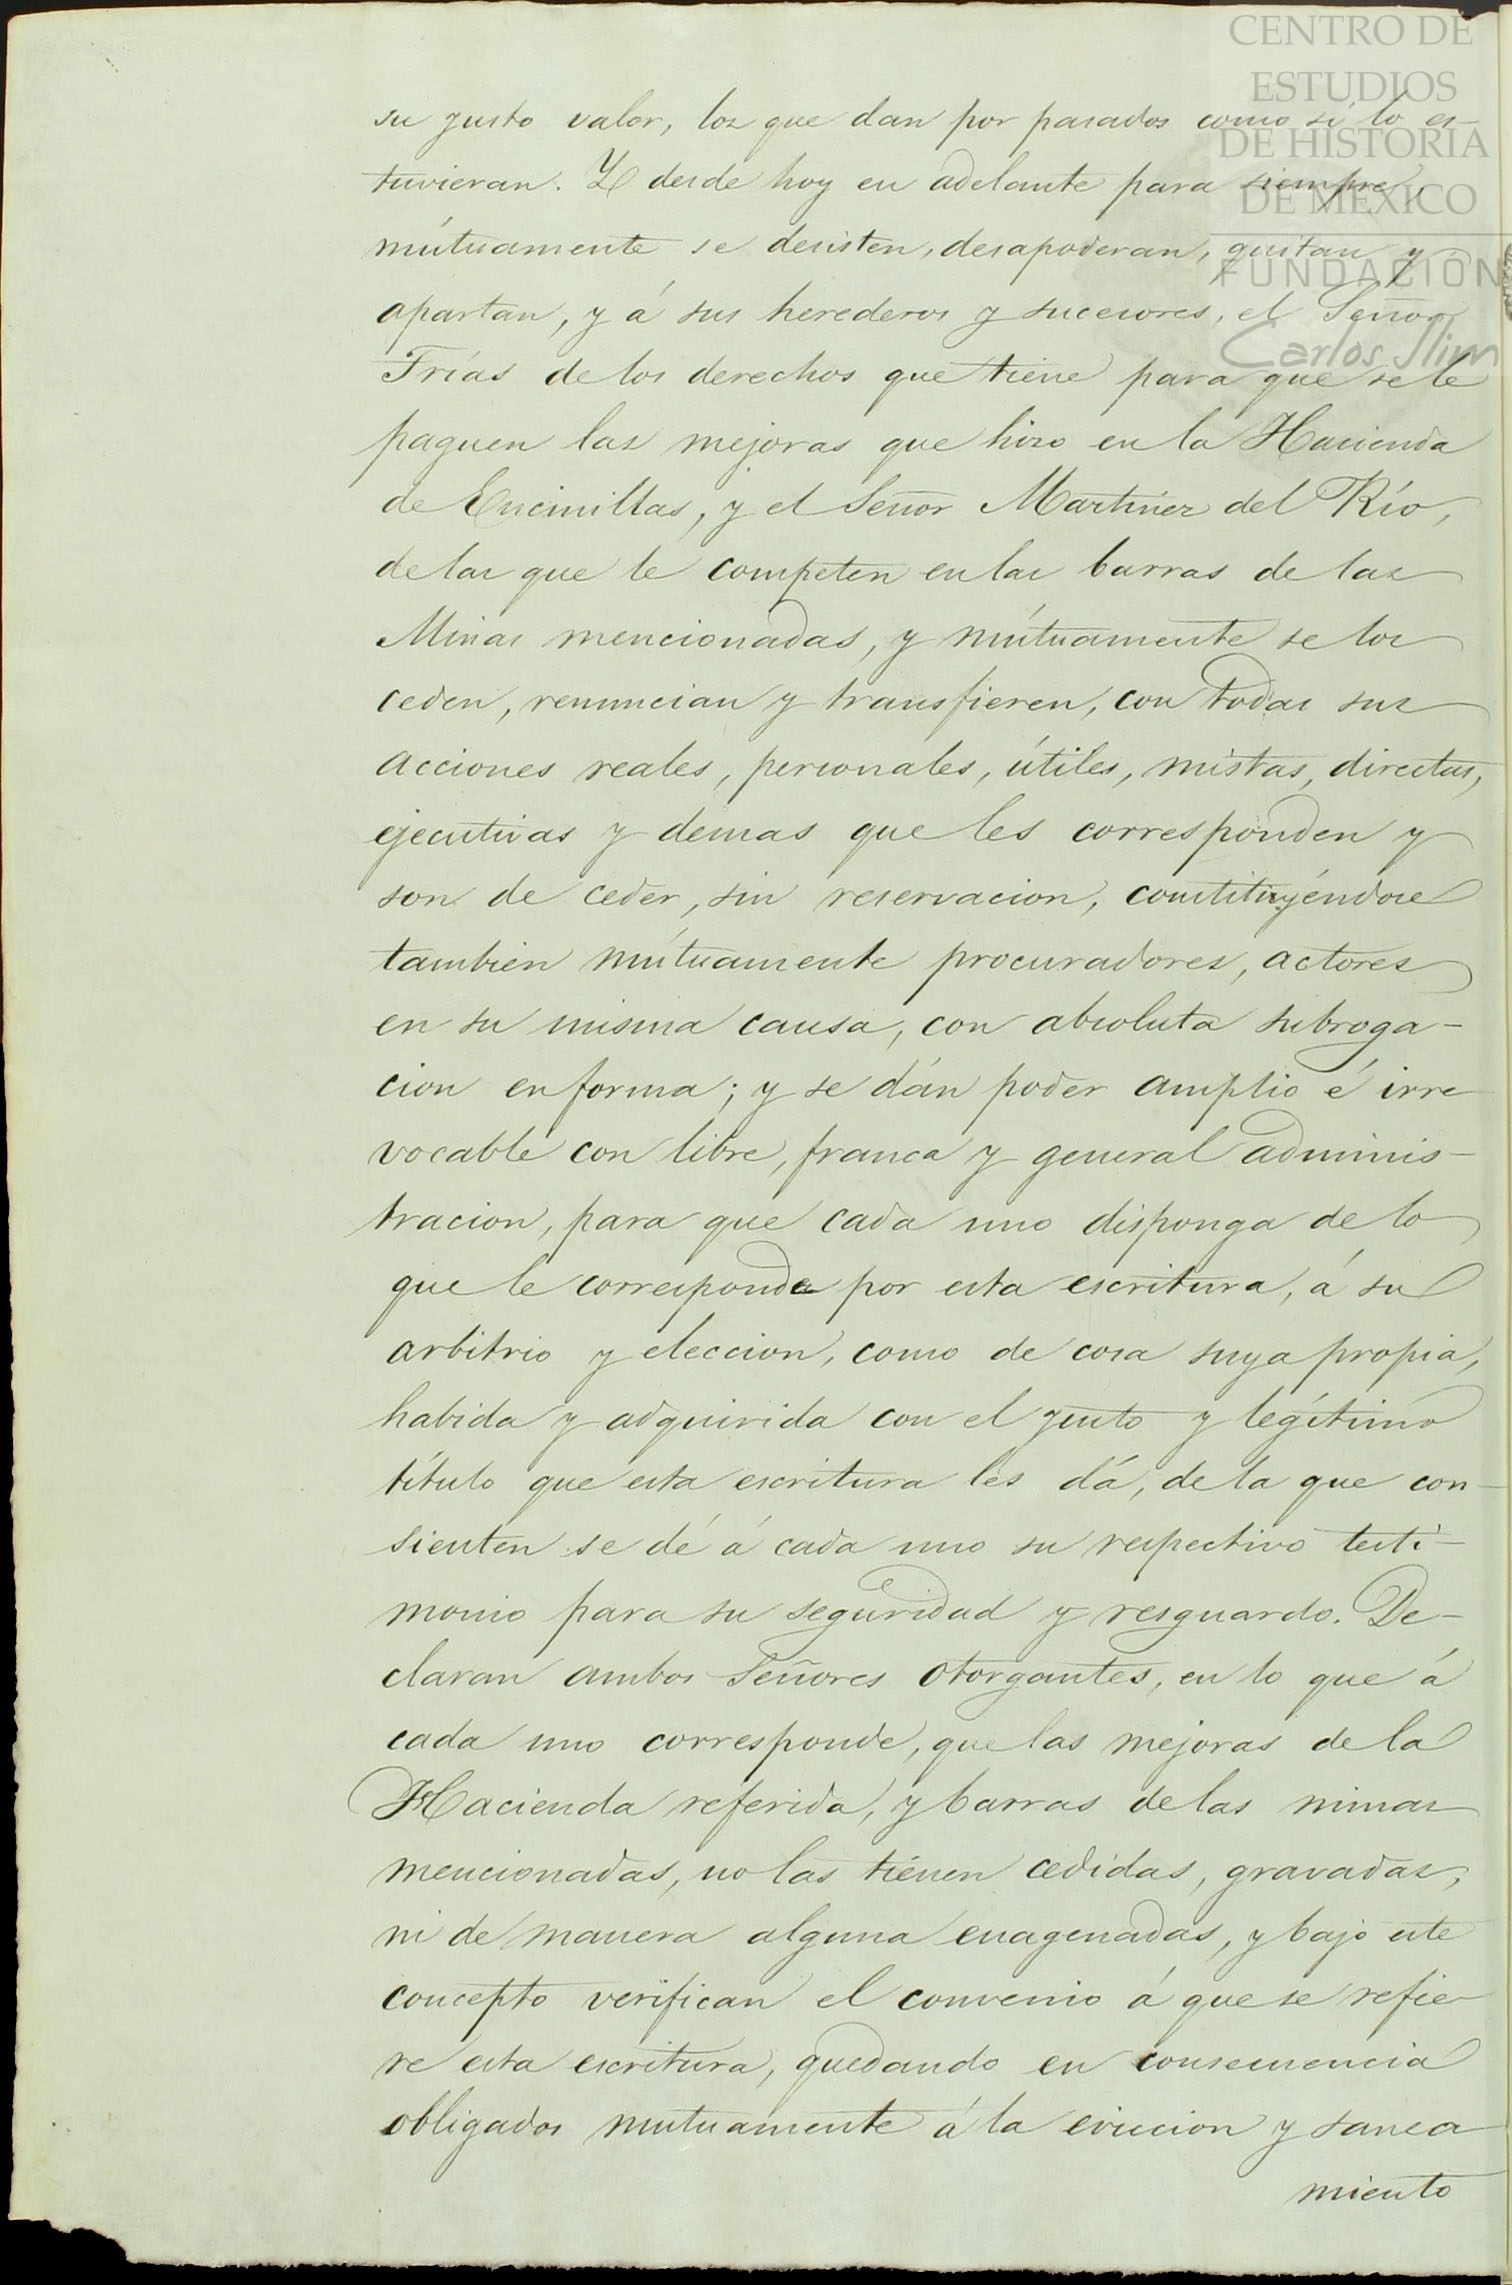 CENTRO DE
ESTUDIOS
DE HISTORIA
DE MEXICO
FUNDACIÓN
Carlos Slim
su justo valor, los que dan por pasados como si lo es-
tuvieran. Y desde hoy en adelante para siempre,
mútuamente se desisten, desapoderan, quitan y
apartan, y á sus herederos y sucesores, el Señor
Frías de los derechos que tiene para que se le
paguen las mejoras que hizo en la Hacienda
de Encinillas, y el Señor Martinez del Río,
de las que le competen en las barras de las
Minas mencionadas, y mútuamente se los
ceden, renuncian y transfieren, con todas sus
acciones reales, personales, útiles, mistas, directas,
ejecutivas y demas que les corresponden y
son de ceder, sin reservacion, constituyéndose
tambien mútuamente procuradores, actores
en su misma causa, con absoluta subroga-
cion en forma; y se dán poder amplio é irre-
vocable con libre, franca y general adminis-
tracion, para que cada uno disponga de lo
que le corresponde por esta escritura, á su
arbitrio y eleccion, como de cosa suya propia,
habida y adquirida con el justo y legítimo
título que esta escritura les dá, de la que con-
sienten se dé á cada uno su respectivo testi-
monio para su seguridad y resguardo. De-
claran ambos Señores otorgantes, en lo que á
cada uno corresponde, que las mejoras de la
Hacienda referida, y barras de las minas
mencionadas, no las tienen cedidas, gravadas,
ni de manera alguna enagenadas, y bajo este
concepto verifican el convenio á que se refie-
re esta escritura, quedando en consecuencia
obligados mutuamente á la eviccion y sanea
miento